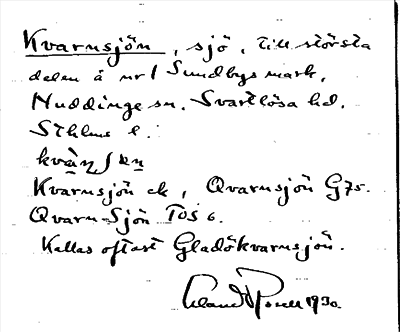 Kvarnsjön, sjö, till största
delen å nr 1 Sundbys mark,
Huddinge sn. Svartlösa hd.
Sthlms l.
Kvarnsjön ek, Qvarnsjön G75.
Qvarn-Sjön TOS 6.
Kallas oftast Gladökvarnsjön.
1930.